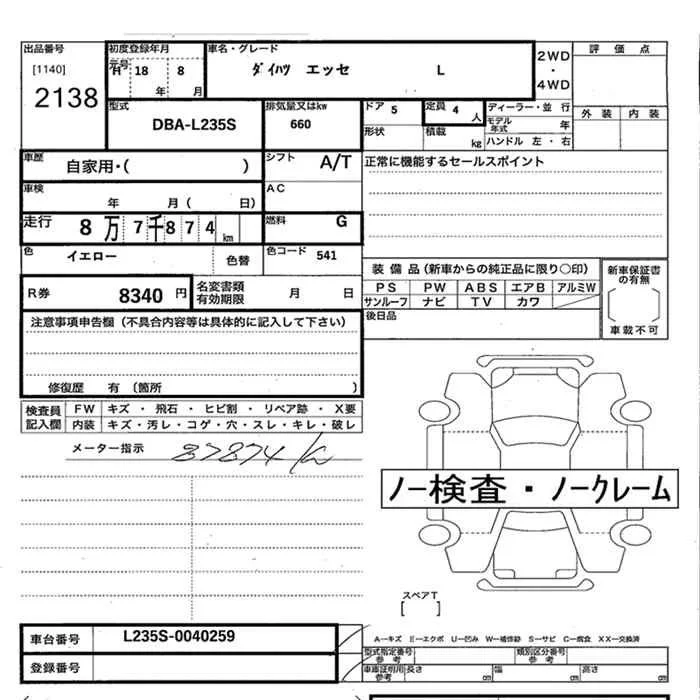 出品番号
[1140]
2138
初度登録年月
元号 H 18 8
年 月
車名・グレード
ダイハツ エッセ L
2WD
・
4WD
評 価 点
外 装 内 装
型式
DBA-L235S
排気量又はkw
660
ドア 5
形状
定員 4 人
積載 kg
ディーラー・並 行
モデル年式 年
ハンドル 左・右
車歴
自家用・( )
シフト A/T
正常に機能するセールスポイント
車検
年 月( 日)
AC
走行 8万7千874km
燃料 G
色 イエロー 色替
色コード 541
R券 8340 円
名変書類
有効期限 月 日
装 備 品(新車からの純正品に限り○印)
PS PW ABS エアB アルミW
サンルーフ ナビ TV カワ
後日品
新車保証書
の有無
車載不可
注意事項申告欄(不具合内容等は具体的に記入して下さい)
修復歴 有(箇所 )
検査員
記入欄
FW キズ・飛石・ヒビ割・リペア跡・X要
内装 キズ・汚レ・コゲ・穴・スレ・キレ・破レ
メーター指示 87874 km
ノー検査・ノークレーム
スペアT
[ ]
車台番号 L235S-0040259
登録番号
A-キズ E-エクボ U-凹み W-補修跡 S-サビ C-腐食 XX-交換済
型式指定番号
参考
類別区分番号
参考
車庫証明用
参考
長さ cm 幅 cm 高さ cm